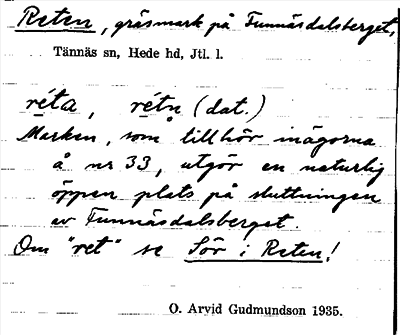 Reten, gräsmark på Funnäsdalsberget,
Tännäs sn, Hede hd, Jtl. l.
réta, rétn (dat.)
Marken, som tillhör inägorna
å nr 33, utgör en naturlig
öppen plats på sluttningen
av Funnäsdalsberget.
Om "ret" se Sör i Reten!
O. Arvid Gudmundson 1935.